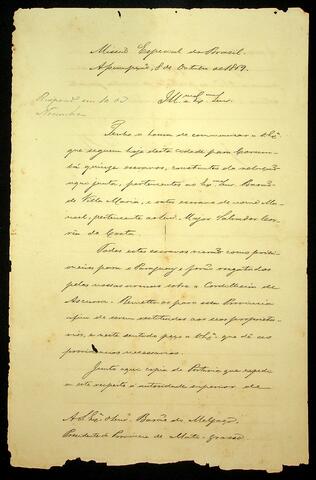 Missão Especial do Brasil.
Assumpção, 8 de Outubro de 1869.
Respond. em 10 de
Novembro
Illmo. e Exmo. Snr.
Tenho a honra de communicar a V. Exª.
que seguem hoje desta cidade para Corum-
bá quinze escravos, constantes da relação
aqui junta, pertencentes ao Exmo. Snr. Barão
de Villa Maria, e outro escravo de nome Ma-
noel, pertencente ao Snr. Major Salvador Cor-
rêa da Costa.
Todos estes escravos vierão como prisio-
neiros para o Paraguay e forão resgatados
pelas nossas armas sobre a Cordilheira de
Ascurra. Remetto-os para essa Provincia
afim de serem restituidos aos seos proprieta-
rios, e neste sentido peço a V. Exª. que dê as
providencias necessarias.
Junto aqui copia da Portaria que expedi
a este respeito á autoridade superior de
A S. Exª. o Snr. Barão de Melgaço,
Presidente da Provincia de Mato-Grosso